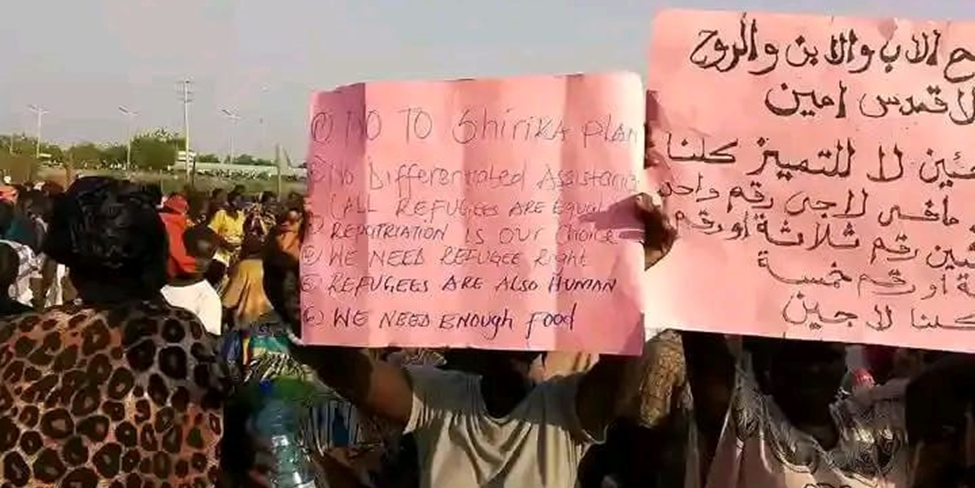 ① NO TO Shirika plan
② No Differentrated Assistance
(ALL REFUGEES ARE Equal
③ REPATRIATION is our Choice
④ WE NEED REFUGEE Right
⑤ REFUGEES ARE ALSO HUMAN
⑥ WE NEED ENOUGH Food
الاب والابن والروح
القدس امين
لا للتميز كلنا
مافى لاجى رقم واحد
رقم ثلاثة او رقم
او رقم خمسة
كلنا لاجين